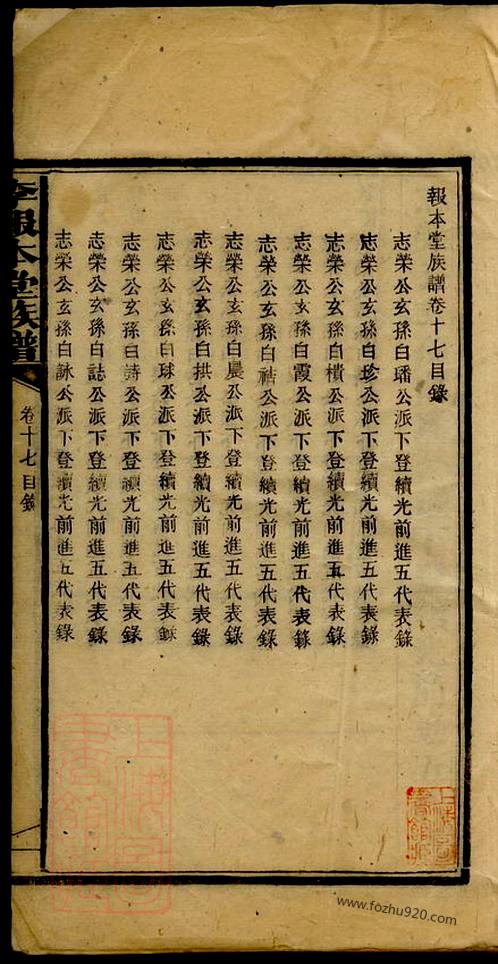 報本堂族譜卷十七目錄
志榮公玄孫白璠公派下登續光前進五代表錄
志榮公玄孫白珍公派下登續光前進五代表錄
志榮公玄孫白樻公派下登續光前進五代表錄
志榮公玄孫白霞公派下登續光前進五代表錄
志榮公玄孫白祮公派下登續光前進五代表錄
志榮公玄孫白晨公派下登續光前進五代表錄
志榮公玄孫白拱公派下登續光前進五代表錄
志榮公玄孫白球公派下登續光前進五代表錄
志榮公玄孫白詩公派下登續光前進五代表錄
志榮公玄孫白誌公派下登續光前進五代表錄
志榮公玄孫白詠公派下登續光前進五代表錄
李報本堂族譜
卷十七目錄
www.fozhu920.com